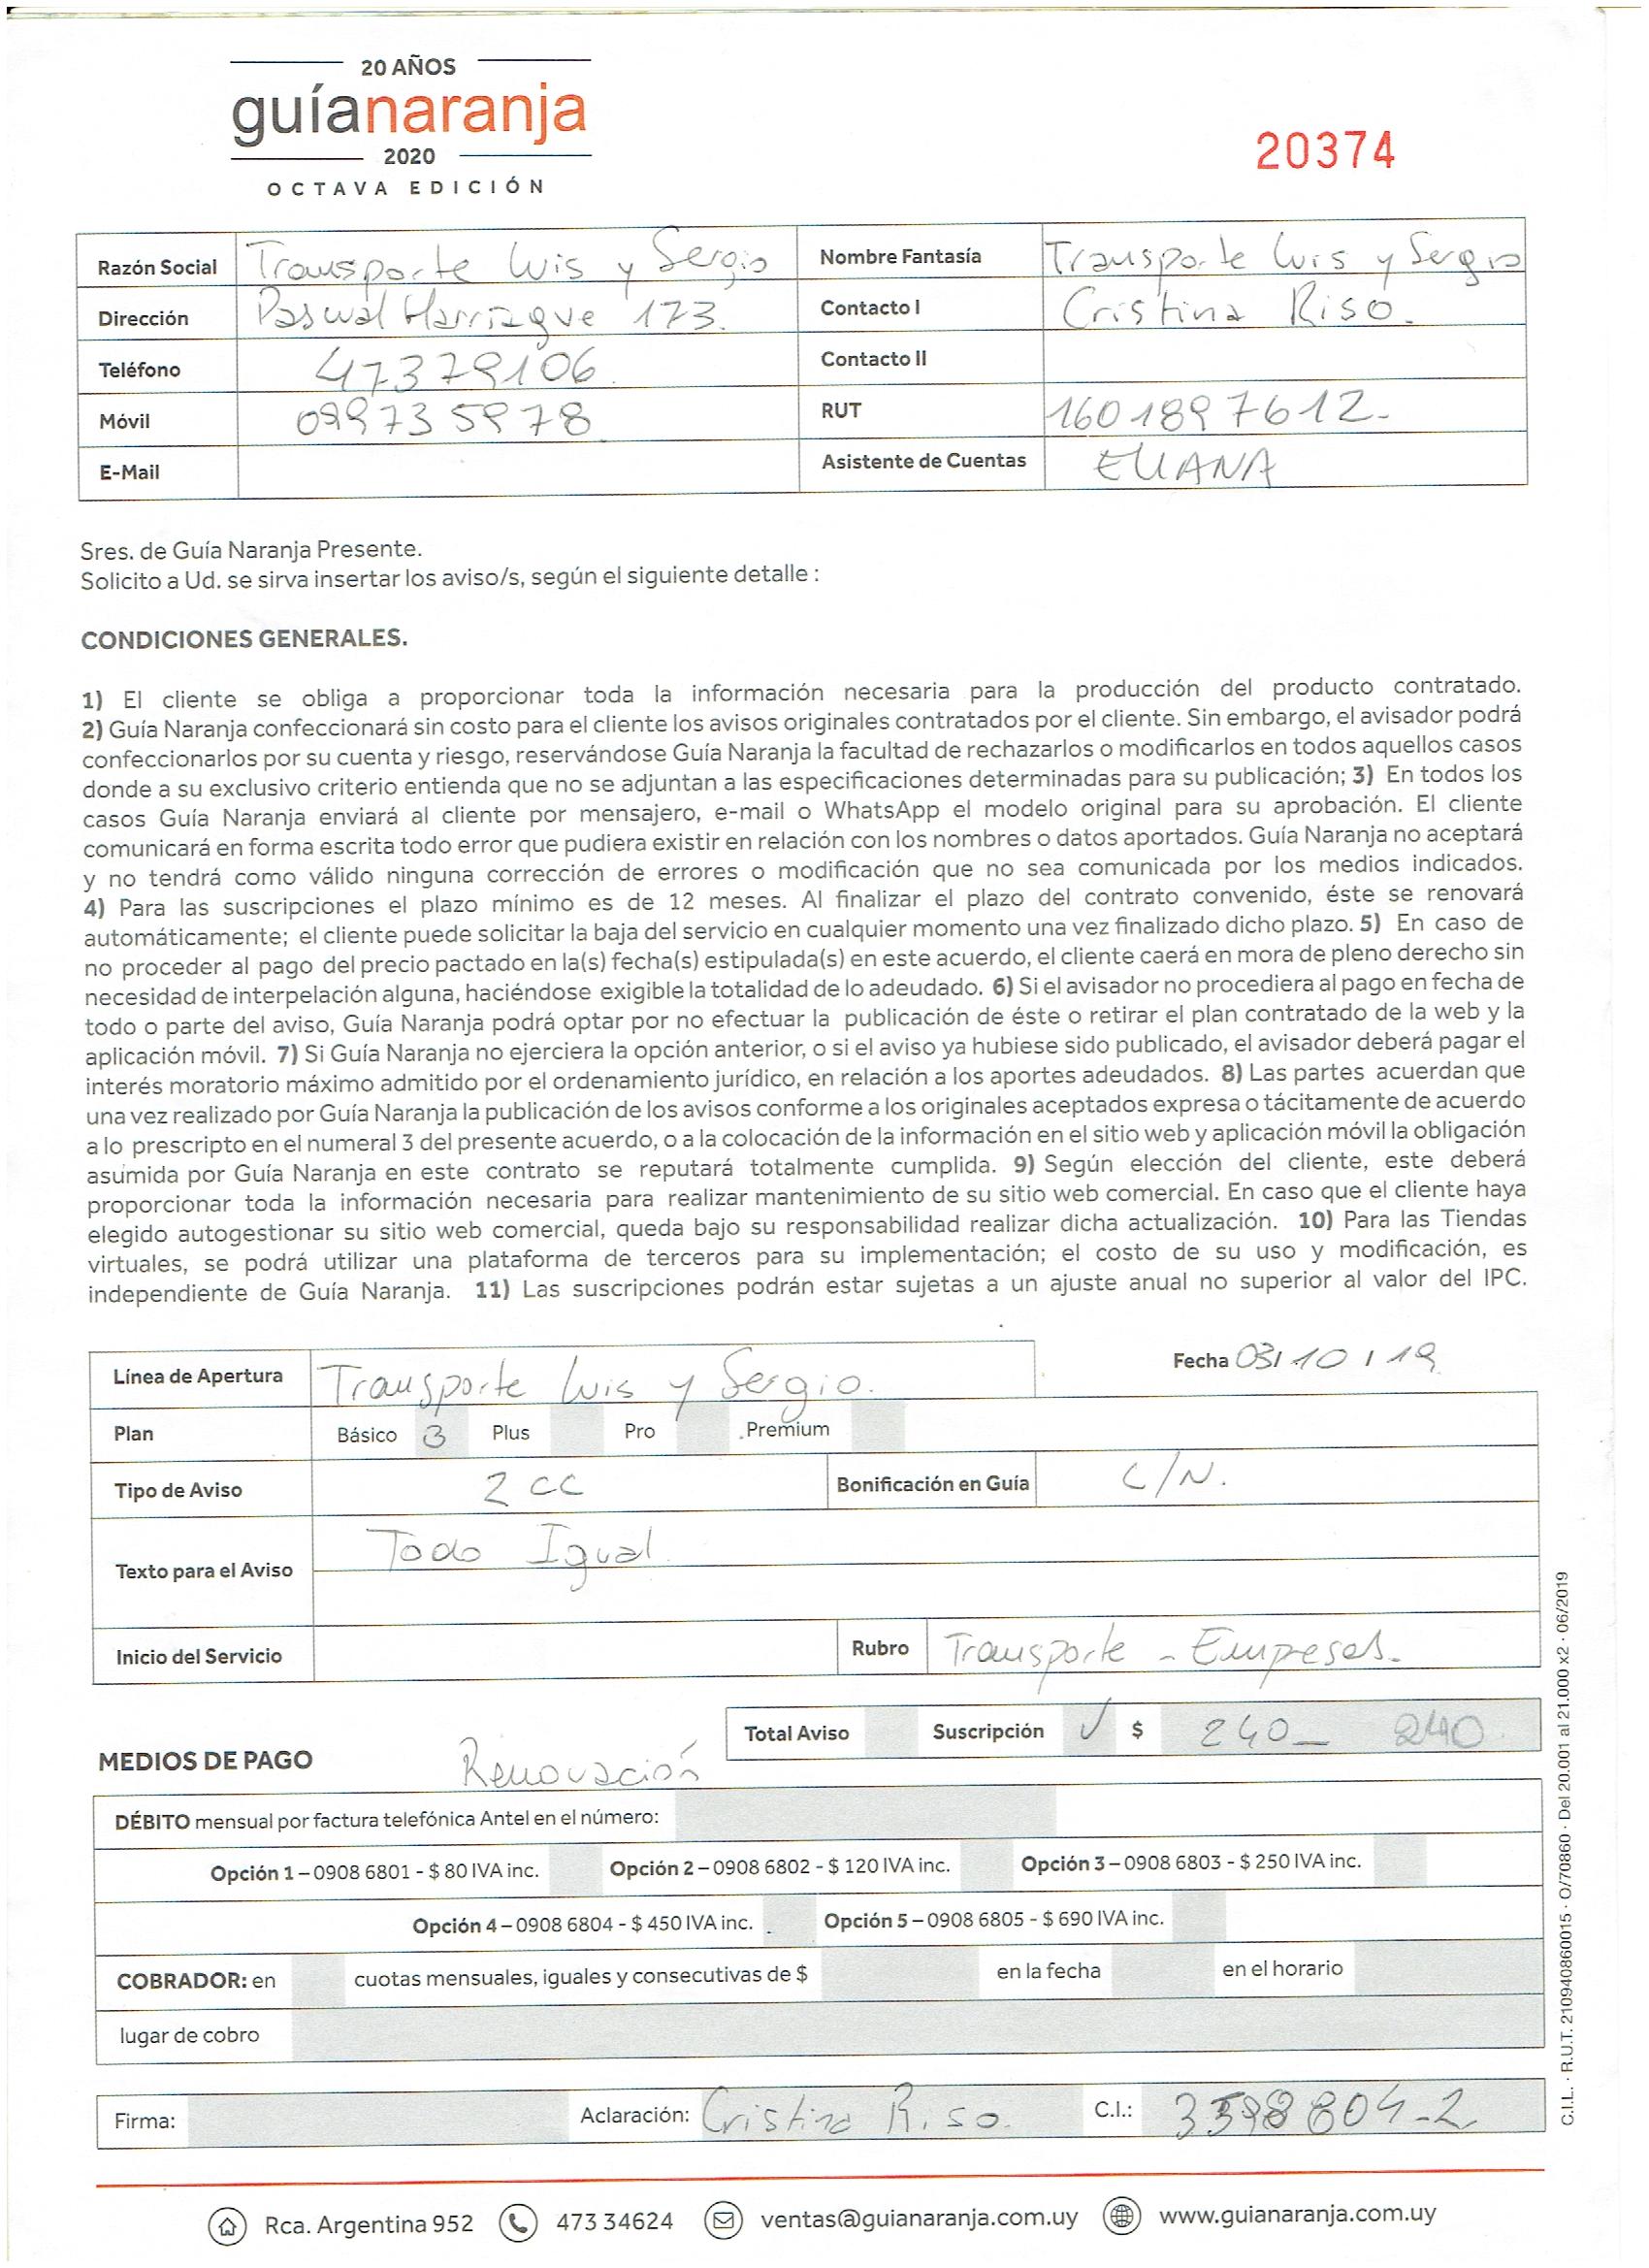 20 AÑOS
guíanaranja
2020
OCTAVA EDICIÓN
20374
Razón Social Transporte Luis y Sergio Nombre Fantasía Transporte Luis y Sergio
Dirección Pascual Harriague 173. Contacto I Cristina Riso.
Teléfono 47379106 Contacto II
Móvil 099735978 RUT 1601897612-
E-Mail Asistente de Cuentas ELIANA
Sres. de Guía Naranja Presente.
Solicito a Ud. se sirva insertar los aviso/s, según el siguiente detalle :
CONDICIONES GENERALES.
1) El cliente se obliga a proporcionar toda la información necesaria para la producción del producto contratado.
2) Guía Naranja confeccionará sin costo para el cliente los avisos originales contratados por el cliente. Sin embargo, el avisador podrá
confeccionarlos por su cuenta y riesgo, reservándose Guía Naranja la facultad de rechazarlos o modificarlos en todos aquellos casos
donde a su exclusivo criterio entienda que no se adjuntan a las especificaciones determinadas para su publicación; 3) En todos los
casos Guía Naranja enviará al cliente por mensajero, e-mail o WhatsApp el modelo original para su aprobación. El cliente
comunicará en forma escrita todo error que pudiera existir en relación con los nombres o datos aportados. Guía Naranja no aceptará
y no tendrá como válido ninguna corrección de errores o modificación que no sea comunicada por los medios indicados.
4) Para las suscripciones el plazo mínimo es de 12 meses. Al finalizar el plazo del contrato convenido, éste se renovará
automáticamente; el cliente puede solicitar la baja del servicio en cualquier momento una vez finalizado dicho plazo. 5) En caso de
no proceder al pago del precio pactado en la(s) fecha(s) estipulada(s) en este acuerdo, el cliente caerá en mora de pleno derecho sin
necesidad de interpelación alguna, haciéndose exigible la totalidad de lo adeudado. 6) Si el avisador no procediera al pago en fecha de
todo o parte del aviso, Guía Naranja podrá optar por no efectuar la publicación de éste o retirar el plan contratado de la web y la
aplicación móvil. 7) Si Guía Naranja no ejerciera la opción anterior, o si el aviso ya hubiese sido publicado, el avisador deberá pagar el
interés moratorio máximo admitido por el ordenamiento jurídico, en relación a los aportes adeudados. 8) Las partes acuerdan que
una vez realizado por Guía Naranja la publicación de los avisos conforme a los originales aceptados expresa o tácitamente de acuerdo
a lo prescripto en el numeral 3 del presente acuerdo, o a la colocación de la información en el sitio web y aplicación móvil la obligación
asumida por Guía Naranja en este contrato se reputará totalmente cumplida. 9) Según elección del cliente, este deberá
proporcionar toda la información necesaria para realizar mantenimiento de su sitio web comercial. En caso que el cliente haya
elegido autogestionar su sitio web comercial, queda bajo su responsabilidad realizar dicha actualización. 10) Para las Tiendas
virtuales, se podrá utilizar una plataforma de terceros para su implementación; el costo de su uso y modificación, es
independiente de Guía Naranja. 11) Las suscripciones podrán estar sujetas a un ajuste anual no superior al valor del IPC.
Línea de Apertura Transporte Luis y Sergio. Fecha 03/10/19
Plan Básico 3 Plus Pro Premium
Tipo de Aviso 2 CC Bonificación en Guía C/N.
Texto para el Aviso Todo Igual
Inicio del Servicio Rubro Transporte - Empresas-
Total Aviso Suscripción ✓ $ 240_ 240
MEDIOS DE PAGO Renovación
DÉBITO mensual por factura telefónica Antel en el número:
Opción 1 – 0908 6801 - $ 80 IVA inc. Opción 2 – 0908 6802 - $ 120 IVA inc. Opción 3 – 0908 6803 - $ 250 IVA inc.
Opción 4 – 0908 6804 - $ 450 IVA inc. Opción 5 – 0908 6805 - $ 690 IVA inc.
COBRADOR: en cuotas mensuales, iguales y consecutivas de $ en la fecha en el horario
lugar de cobro
Firma: Aclaración: Cristina Riso. C.I.: 3598804-2
C.I.L. · R.U.T. 210940860015 · O/70860 · Del 20.001 al 21.000 x2 · 06/2019
Rca. Argentina 952 473 34624 ventas@guianaranja.com.uy www.guianaranja.com.uy